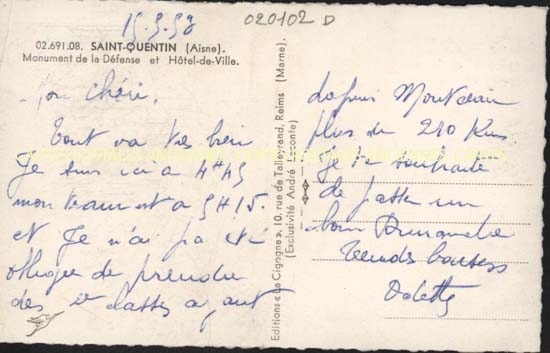 15.3.58
020102 D
02.691.08. SAINT-QUENTIN (Aisne).
Monument de la Défense et Hôtel-de-Ville.
Mon Chéri,
Tout va très bien
Je suis ici à 4H45
mon train est à 5H15.
et Je n'ai pas été
obligée de prendre
des 1e classes ayant
Editions « La Cigogne », 10, rue de Talleyrand, Reims (Marne).
(Exclusivité André Leconte)
depuis
plus de 210 Kms
Je te souhaite
de passer un
bon Dimanche
Tendres baisers
Odette